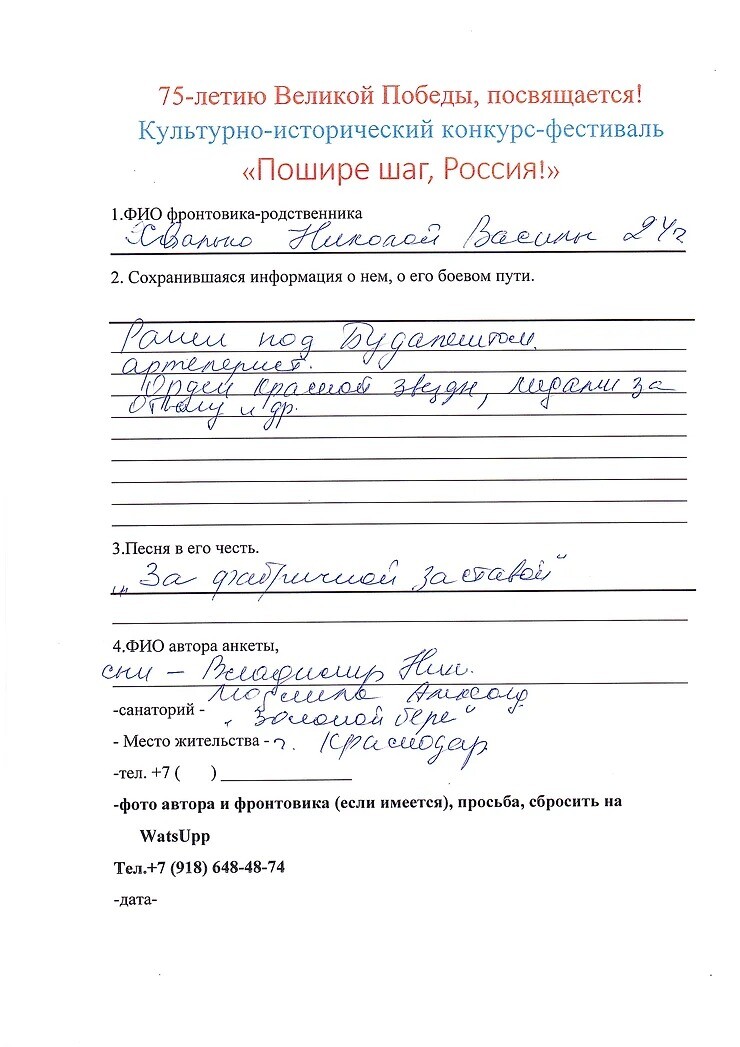 75-летию Великой Победы, посвящается!
Культурно-исторический конкурс-фестиваль
«Пошире шаг, Россия!»
1.ФИО фронтовика-родственника
Николай Василь 24г
2. Сохранившаяся информация о нем, о его боевом пути.
Ранен под Будапештом.
артелерист.
Орден Красной звезды, медали за
Отвагу и др.
3.Песня в его честь.
„За фабричной заставой"
4.ФИО автора анкеты,
сын - Владимир Ник.
-санаторий - „Золотой бере"
- Место жительства - г. Краснодар
-тел. +7 ( ) _______________
-фото автора и фронтовика (если имеется), просьба, сбросить на
WatsUpp
Тел.+7 (918) 648-48-74
-дата-